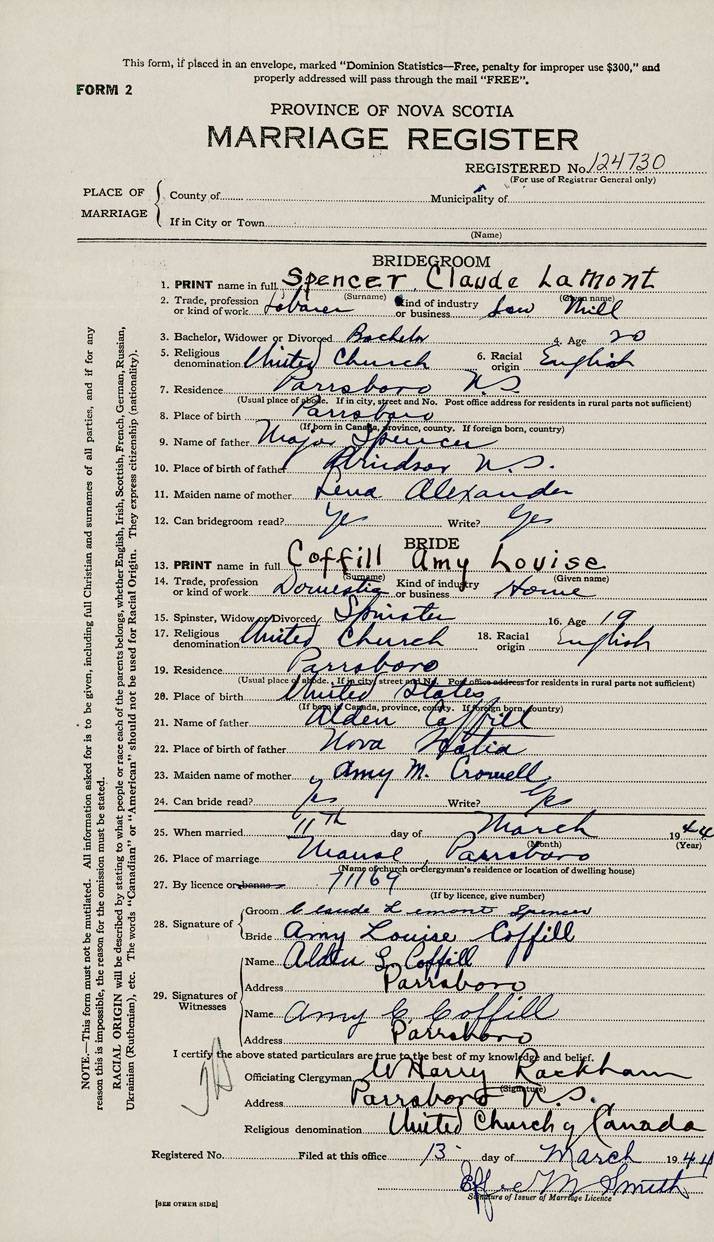 This form, if placed in an envelope, marked "Dominion Statistics—Free, penalty for improper use $300," and
properly addressed will pass through the mail "FREE".
FORM 2
PROVINCE OF NOVA SCOTIA
MARRIAGE REGISTER
REGISTERED No. 124730
(For use of Registrar General only)
PLACE OF MARRIAGE
County of Municipality of
If in City or Town
(Name)
BRIDEGROOM
1. PRINT name in full Spencer Claude LaMont
(Surname) (Given name)
2. Trade, profession or kind of work Laborer Kind of industry or business Saw Mill
3. Bachelor, Widower or Divorced Bachelor 4. Age 20
5. Religious denomination United Church 6. Racial origin English
7. Residence Parrsboro N S
(Usual place of abode. If in city, street and No. Post office address for residents in rural parts not sufficient)
8. Place of birth Parrsboro
(If born in Canada, province, county. If foreign born, country)
9. Name of father Major Spencer
10. Place of birth of father Windsor N.S.
11. Maiden name of mother Lena Alexander
12. Can bridegroom read? Yes Write? Yes
BRIDE
13. PRINT name in full Coffill Amy Louise
(Surname) (Given name)
14. Trade, profession or kind of work Domestic Kind of industry or business Home
15. Spinster, Widow or Divorced Spinster 16. Age 19
17. Religious denomination United Church 18. Racial origin English
19. Residence Parrsboro
(Usual place of abode. If in city, street and No. Post office address for residents in rural parts not sufficient)
20. Place of birth United States
(If born in Canada, province, county. If foreign born, country)
21. Name of father Alden Coffill
22. Place of birth of father Nova Scotia
23. Maiden name of mother Amy M. Crowell
24. Can bride read? yes Write? Yes
25. When married 11th day of March 1944
(Month) (Year)
26. Place of marriage Manse, Parrsboro
(Name of church or clergyman's residence or location of dwelling house)
27. By licence or banns 71169
(If by licence, give number)
28. Signature of
Groom Claude Lemont Spencer
Bride Amy Louise Coffill
29. Signatures of Witnesses
Name Alden L. Coffill
Address Parrsboro
Name Amy C Coffill
Address Parrsboro
I certify the above stated particulars are true to the best of my knowledge and belief.
Officiating Clergyman W Harry Rackham
(Signature)
Address Parrsboro N.S.
Religious denomination United Church of Canada
Registered No. Filed at this office 13 day of March 1944
Effie M Smith
Signature of Issuer of Marriage Licence
[SEE OTHER SIDE]
NOTE.—This form must not be mutilated. All information asked for is to be given, including full Christian and surnames of all parties, and if for any
reason this is impossible, the reason for the omission must be stated.
RACIAL ORIGIN will be described by stating to what people or race each of the parents belongs, whether English, Irish, Scottish, French, German, Russian,
Ukrainian (Ruthenian), etc. The words "Canadian" or "American" should not be used for Racial Origin. They express citizenship (nationality).